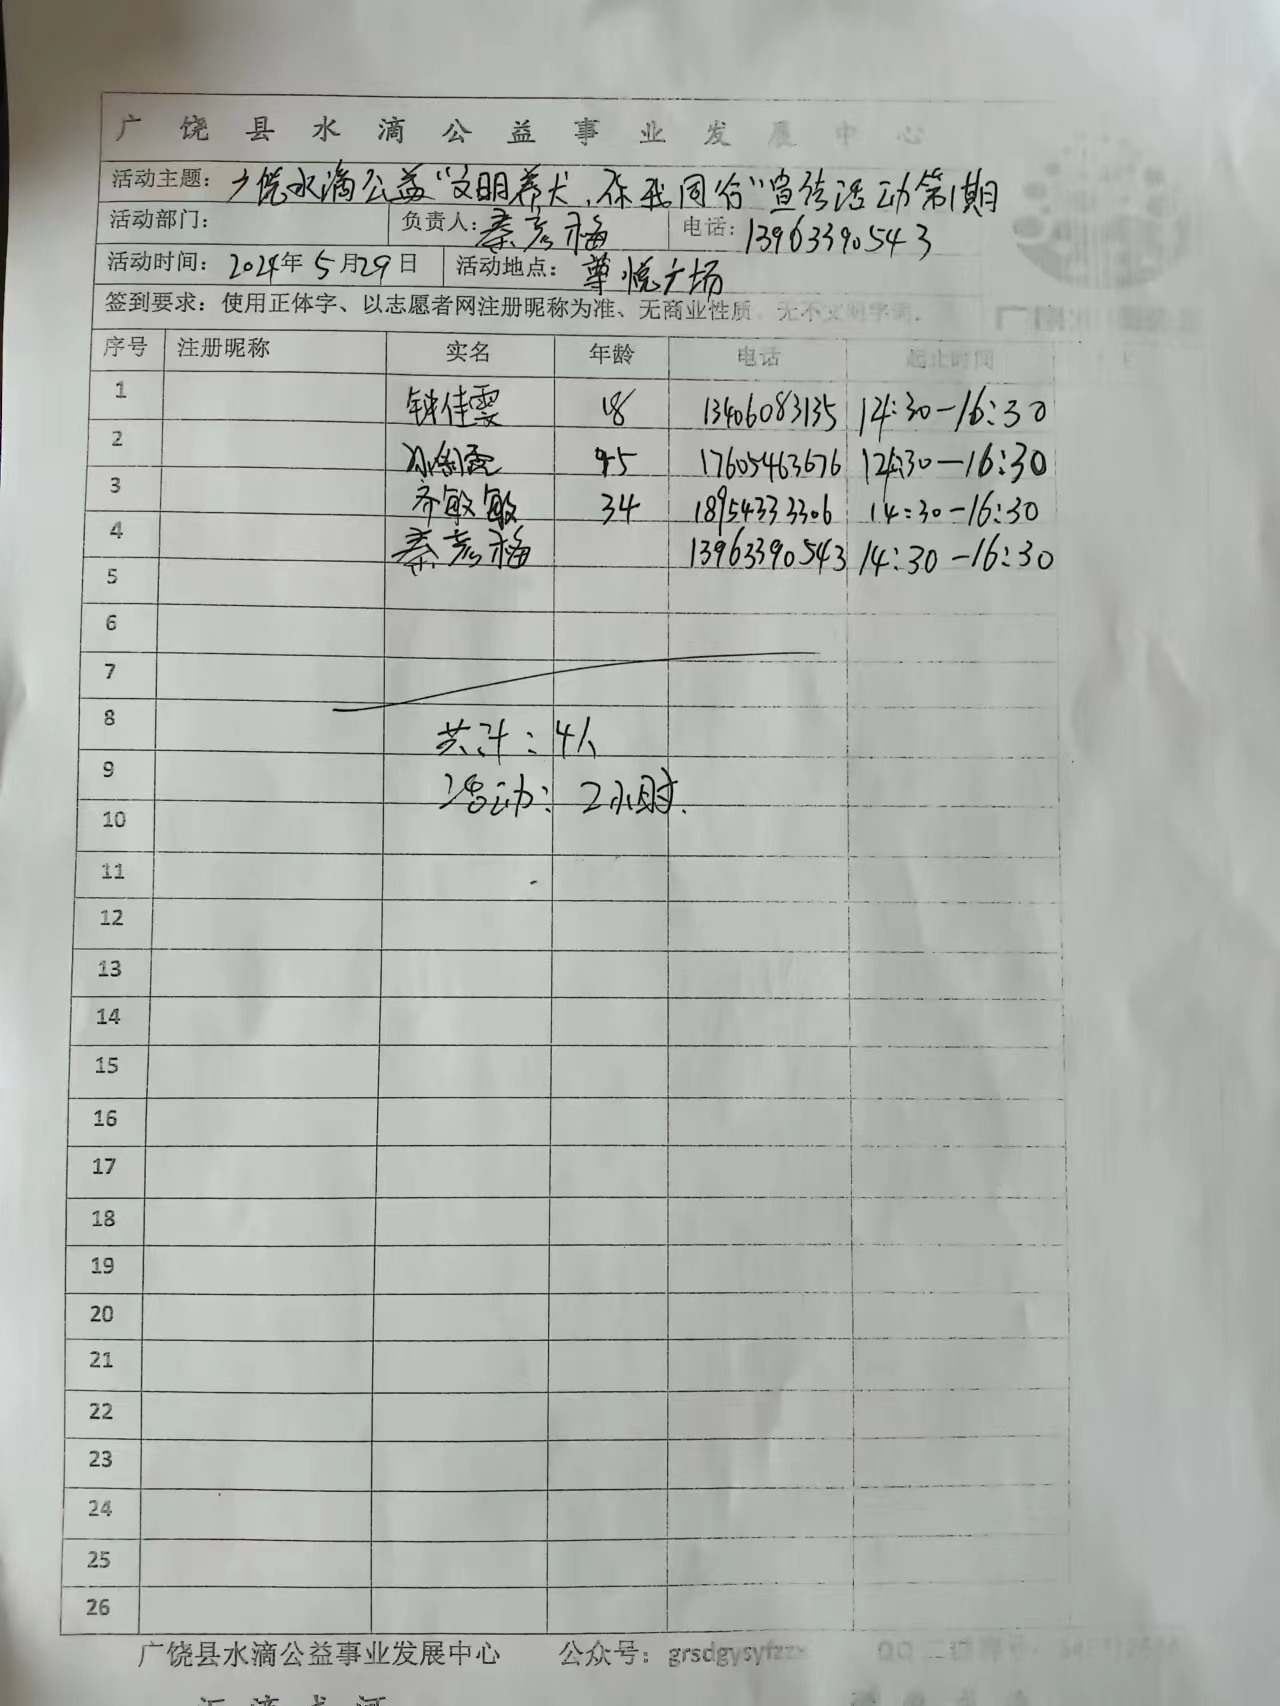 广饶县水滴公益事业发展中心
活动主题：广饶水滴公益“文明养犬，你我同行”宣传活动第1期
活动部门： 负责人：秦彦梅 电话：13963390543
活动时间：2024年5月29日 活动地点：尊悦广场
签到要求：使用正体字、以志愿者网注册昵称为准、无商业性质、无不文明字词.
序号 注册昵称 实名 年龄 电话 起止时间
1 钟佳雯 18 13406083135 14:30-16:30
2 45 17605463676 14:30-16:30
3 齐敏敏 34 18954333306 14:30-16:30
4 秦彦梅 13963390543 14:30-16:30
5
6
7
8 共计：4人
9 活动：2小时.
10
11
12
13
14
15
16
17
18
19
20
21
22
23
24
25
26
广饶县水滴公益事业发展中心 公众号：grsdgysyfzzx
汇滴成河